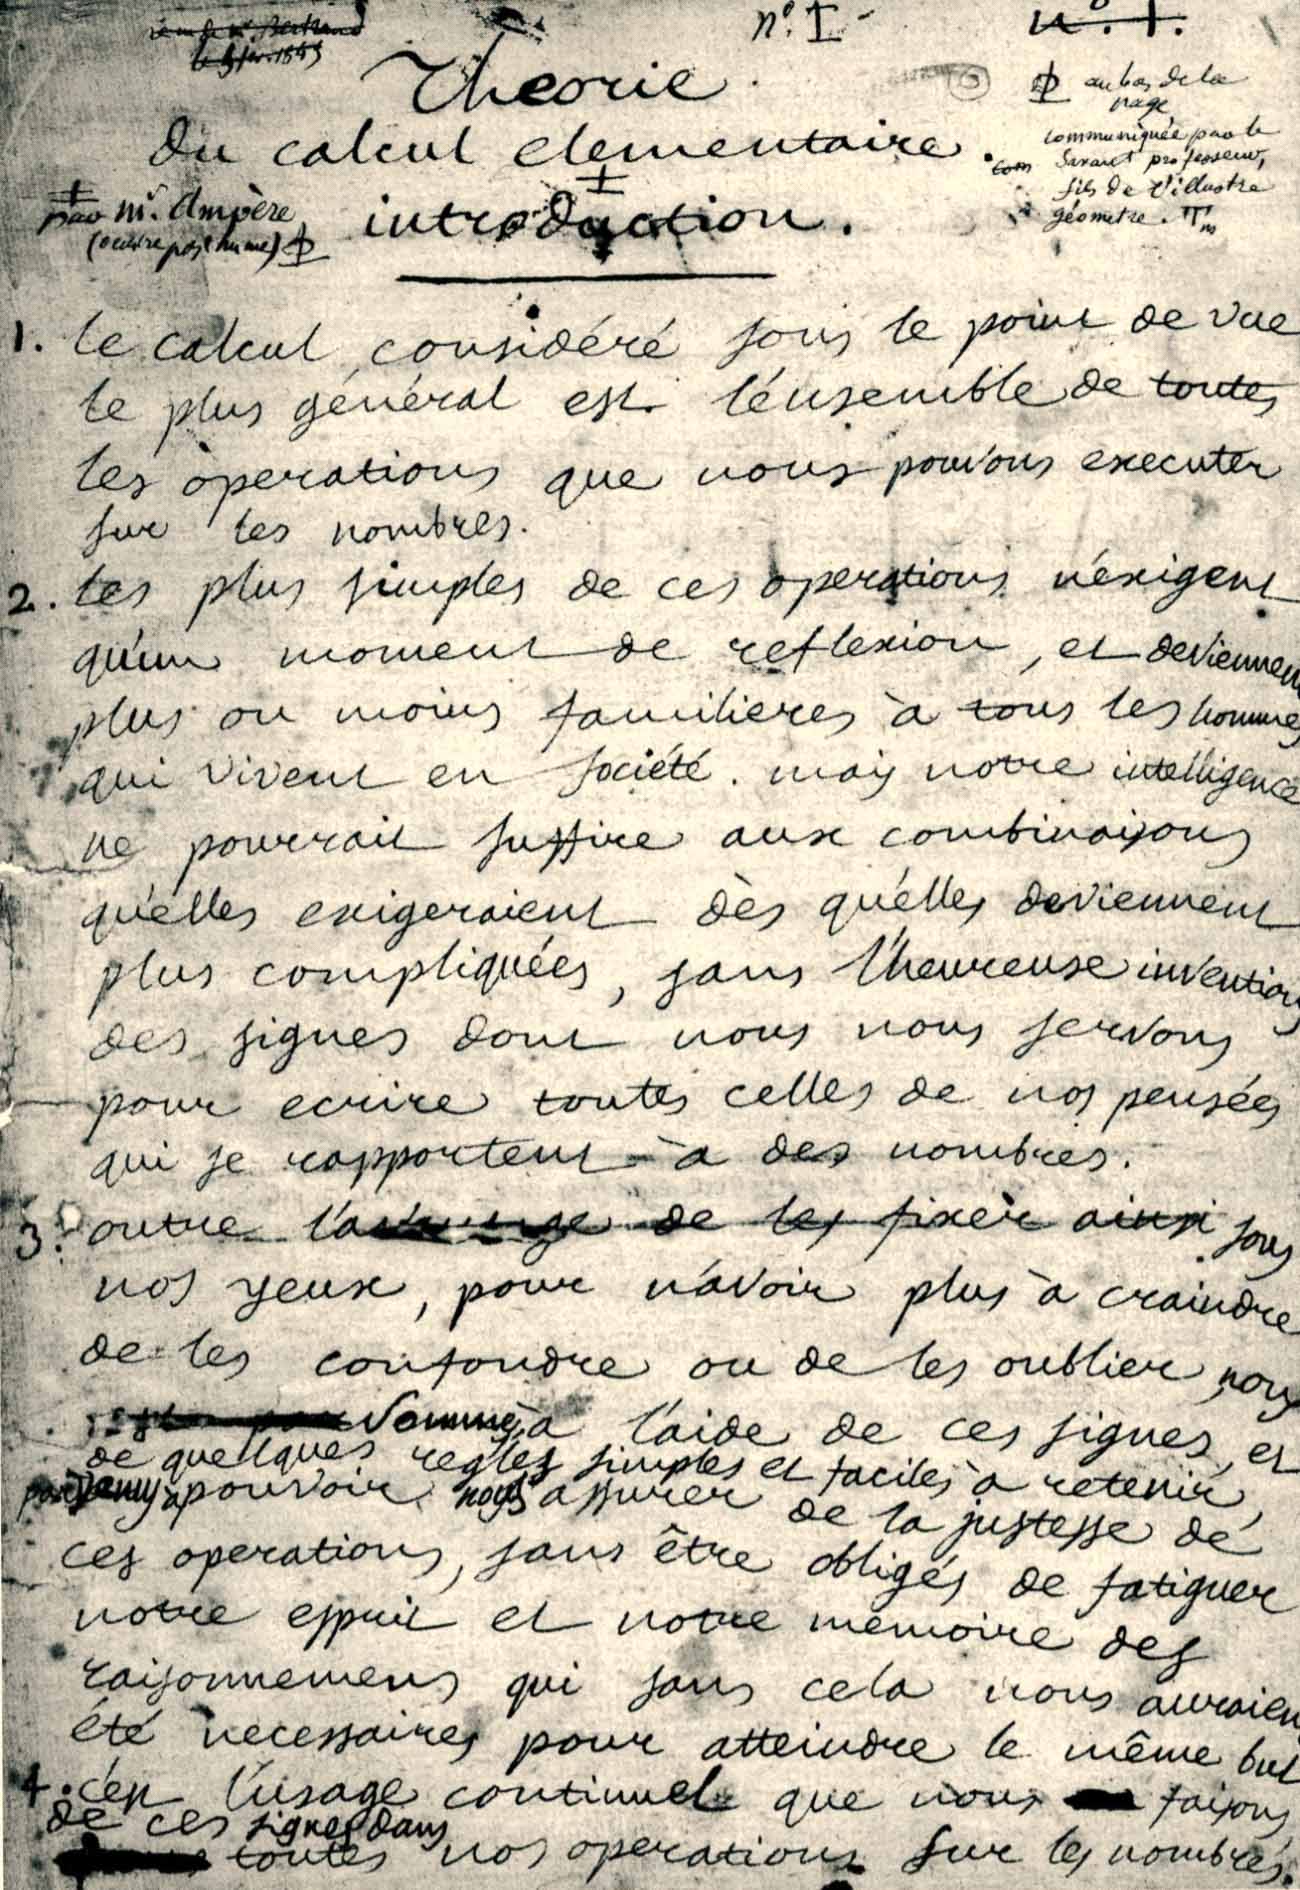 n.º I
n.º 1.
Théorie
du calcul elementaire.
introduction.
par M.r Ampère
(œuvre posthume)
au bas de la
page
communiquée par le
savant professeur,
fils de l'illustre
géometre. Tm
1. le calcul considéré sous le point de vue
le plus général est l'énsemble de toutes
les operations que nous pouvons executer
sur les nombres.
2. les plus simples de ces operations n'éxigent
qu'un moment de reflexion, et deviennent
plus ou moins familieres à tous les hommes
qui vivent en société. mais notre intelligence
ne pourrait suffire aux combinaisons
qu'elles exigeraient dès qu'elles deviennent
plus compliquées, sans l'heureuse invention
des signes dont nous nous servons
pour ecrire toutes celles de nos pensées
qui se rapportent à des nombres.
3. outre l'avantage de les fixer ainsi sous
nos yeux, pour n'avoir plus à craindre
de les confondre ou de les oublier, nous
sommes à l'aide de ces signes, et
de quelques regles simples et faciles à retenir,
pouvoir nous assurer de la justesse de
ces operations, sans être obligés de fatiguer
notre esprit et notre memoire des
raisonnemens qui sans cela nous auraient
été necessaires pour atteindre le même but
4. c'est l'usage continuel que nous faisons
de ces signes dans
toutes nos operations sur les nombres.